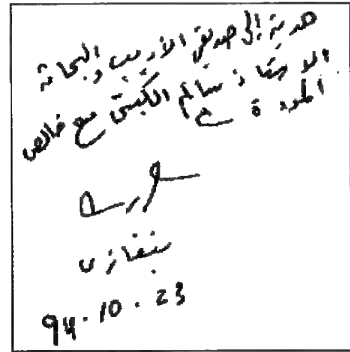 هدية إلى صديقي الأديب والبحاثة
الاستاذ سالم الكبتي مع خالص
المودة
بنغازى
94.10.23